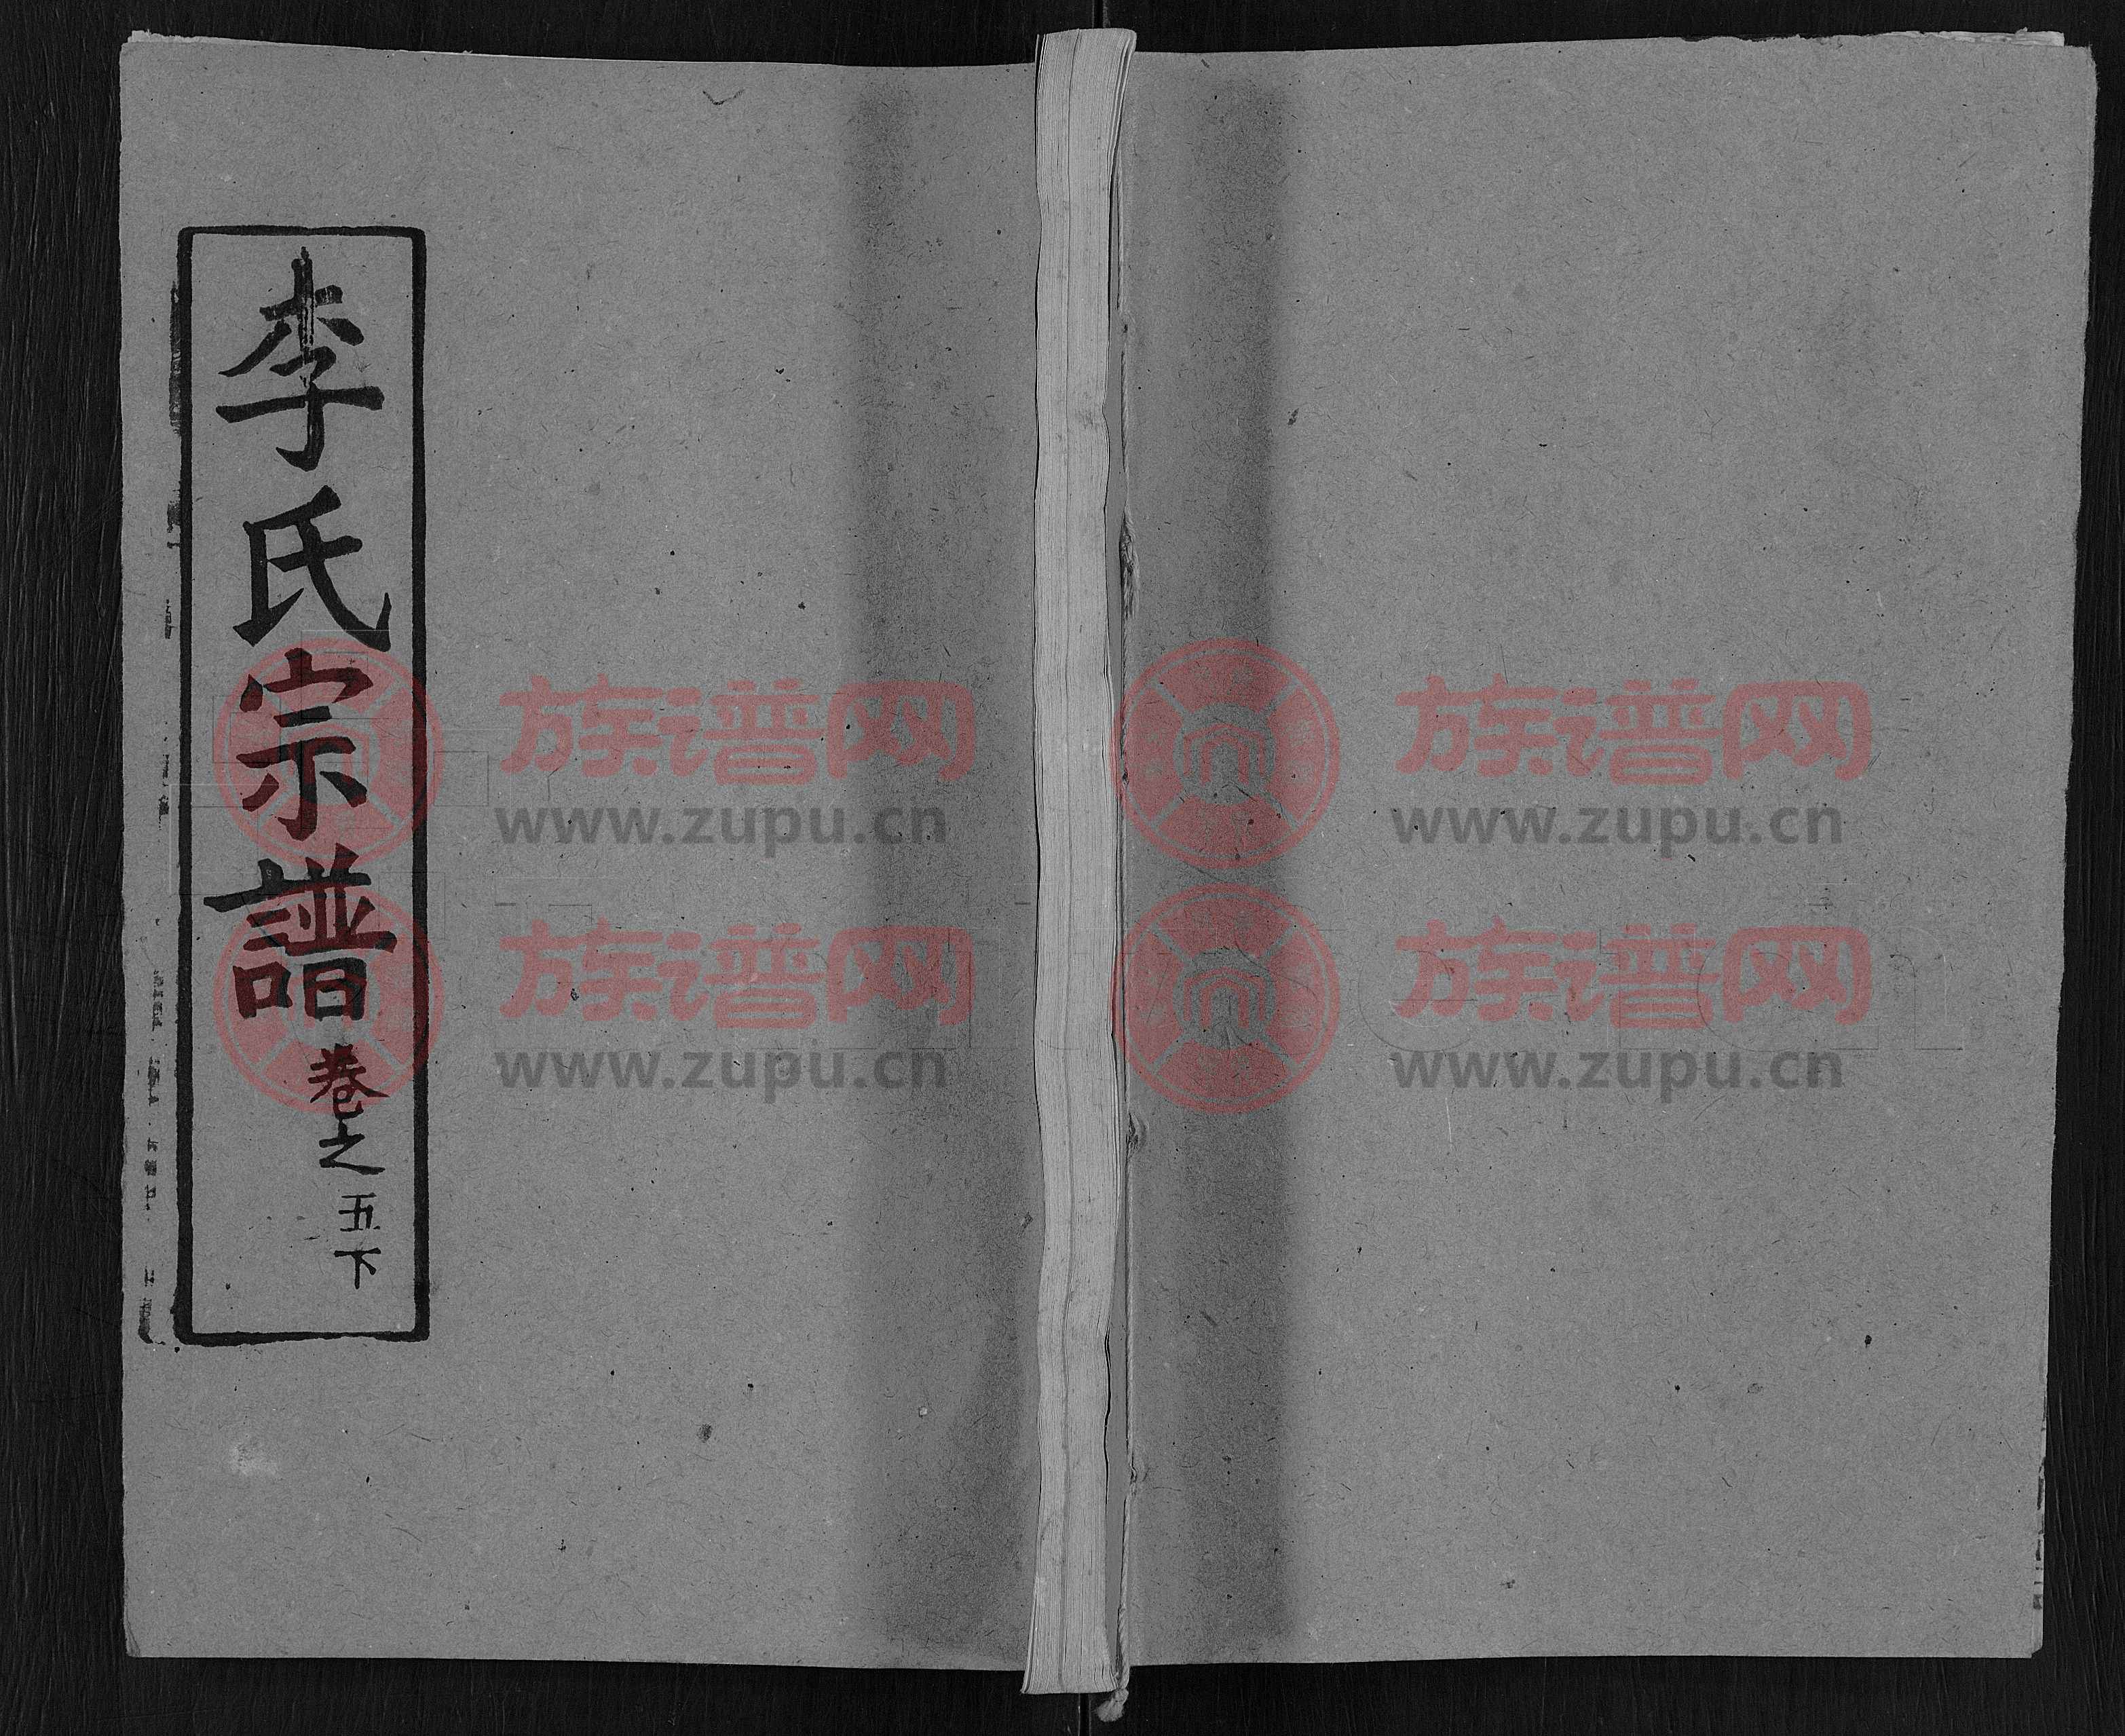 李氏宗譜 卷之五下
族谱网
www.zupu.cn
族谱网
www.zupu.cn
族谱网
www.zupu.cn
族谱网
www.zupu.cn